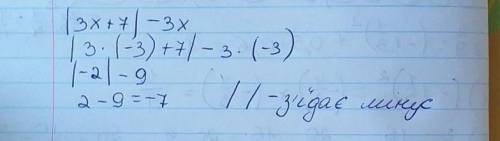 |3x+7|-3x
|3·(-3)+7|-3·(-3)
|-2|-9
2-9=-7 || -з'їдає мінус